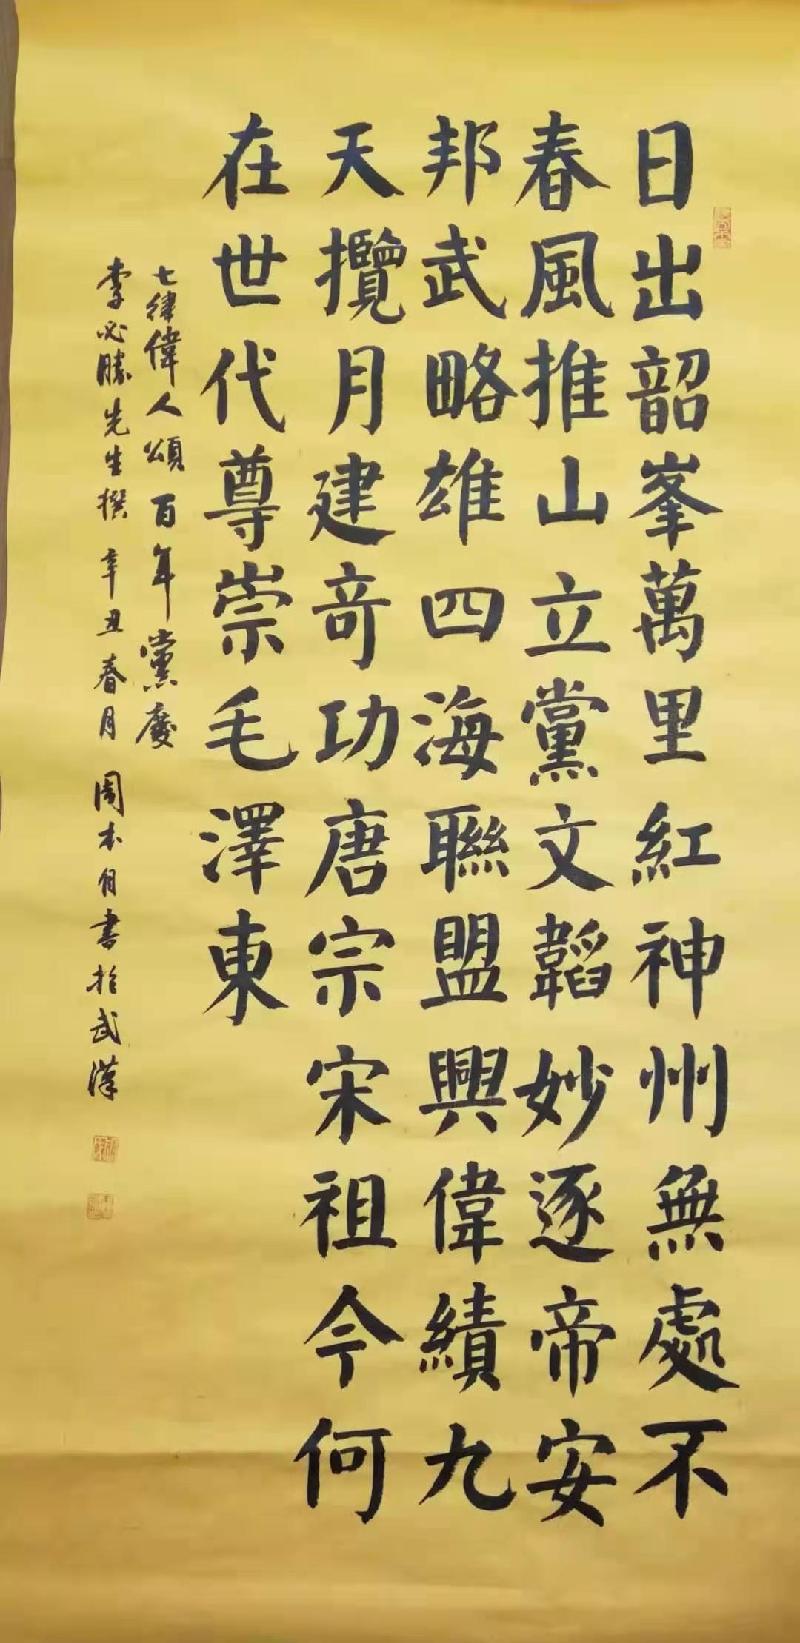 日出韶峯萬里紅神州無處不
春風推山立黨文韜妙逐帝安
邦武略雄四海聯盟興偉績九
天攬月建奇功唐宗宋祖今何
在世代尊崇毛澤東
七律偉人頌百年黨慶
李必勝先生撰辛丑春月周本自書於武漢